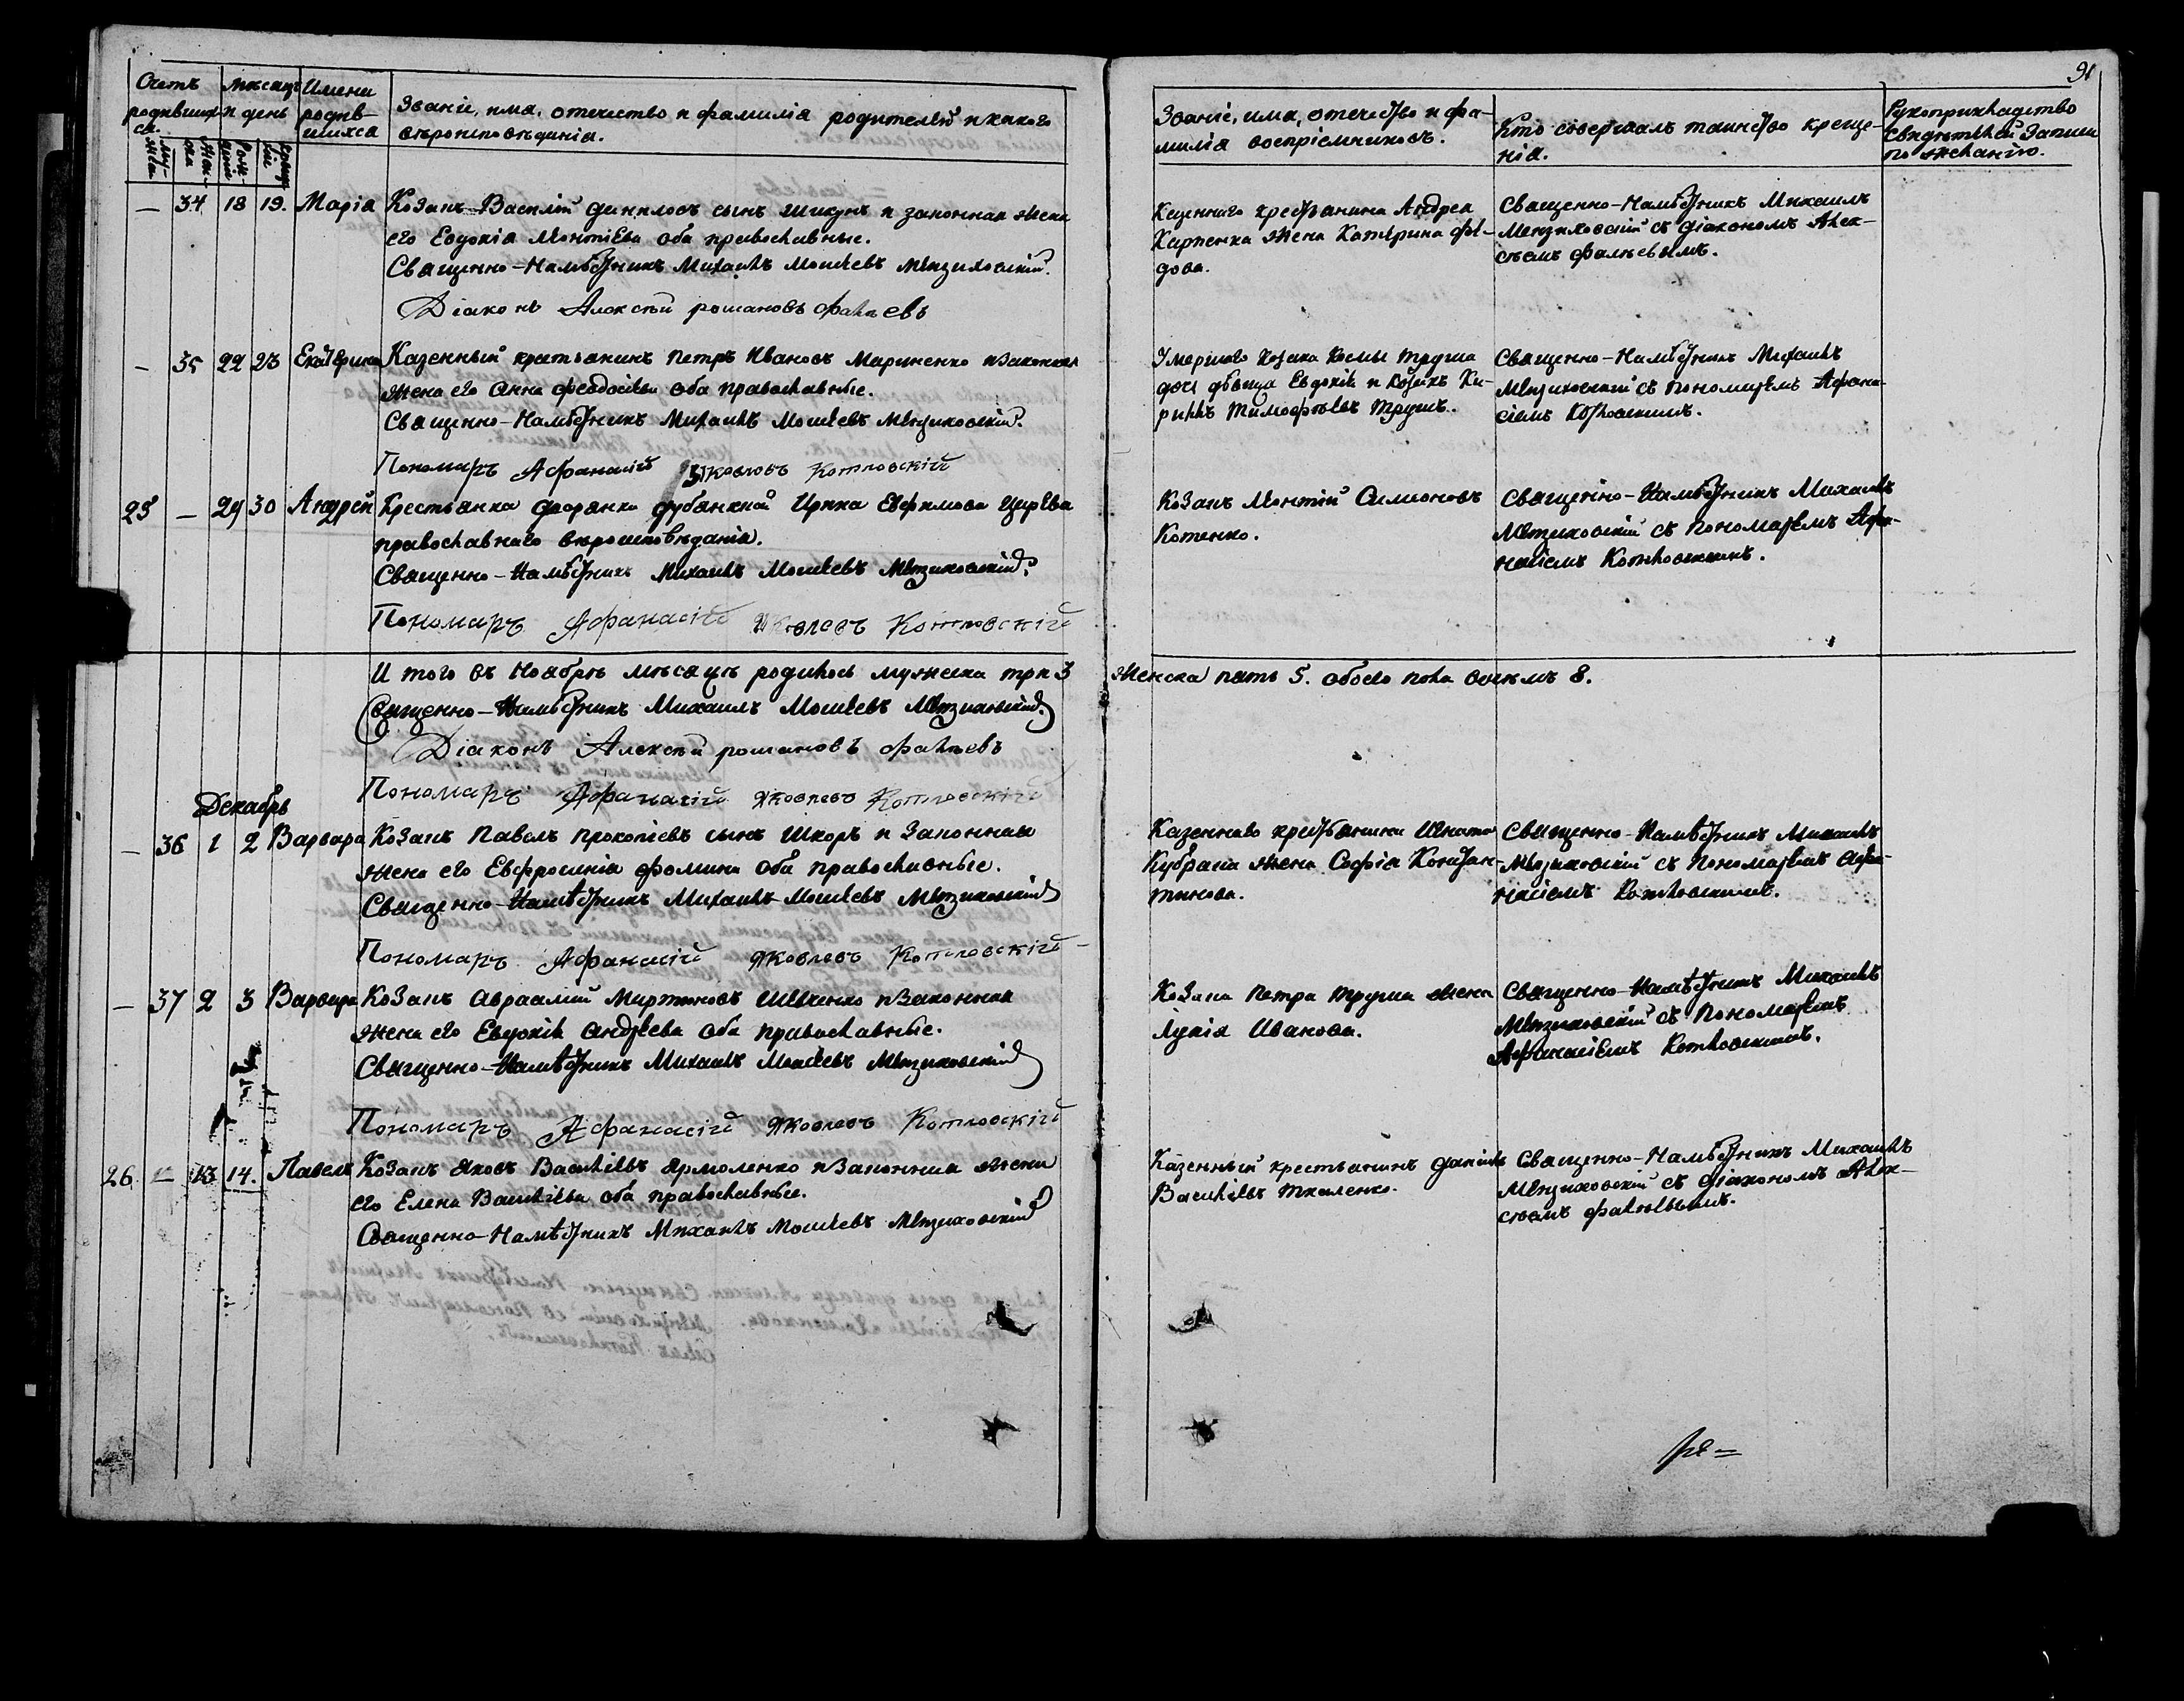 91
Счетъ родившихся.
Мѣсяцъ и день
Имена родившихся
Званіе, имя, отечество и фамилія родителей и какого
вѣроисповѣданія.
Званіе, имя, отечество и фа-
милія воспріемниковъ.
Кто совершалъ таинство креще-
нія.
Рукоприкладство
свидѣтелей записи
по желанію.
— 34 18 19. Марія Козакъ Василій Даниловъ сынъ Шикунъ и законная жена
его Евдокія Монтіева оба православные.
Священно-Намѣстникъ Михаилъ Моисеевъ
Діаконъ Алексѣй Романовъ Фалѣевъ
Казеннаго крестьянина Андрея
Карпенка жена Катерина Фе-
дова.
Священно-Намѣстникъ Михаилъ
съ Діакономъ Алек-
сѣемъ Фалѣевымъ.
— 35 22 23 Екатерина Казенный крестьянинъ Петръ Ивановъ Мариненко и законная
жена его Анна Феодосіева оба православные.
Священно-Намѣстникъ Михаилъ Моисеевъ
Пономарь Афанасій Яковлевъ Котловскій
Умершаго козака Космы Труша
дочь дѣвица Евдокія и козакъ Ки-
риллъ Тимофѣевъ Трушъ.
Священно-Намѣстникъ Михаилъ
съ Пономаремъ Афана-
сіемъ Котловскимъ.
25 — 29 30 Андрей Крестьянка дворянки Ирина Евфимова
православнаго вѣроисповѣданія.
Священно-Намѣстникъ Михаилъ Моисеевъ
Пономарь Афанасій Яковлевъ Котловскій
Козакъ Монтій Симионовъ
Котенко.
Священно-Намѣстникъ Михаилъ
съ Пономаремъ Афа-
насіемъ Котловскимъ.
И того въ Ноябрѣ мѣсяцѣ родилось мужеска три 3 женска пять 5. обоего пола восемъ 8.
Священно-Намѣстникъ Михаилъ Моисеевъ
Діаконъ Алексѣй Романовъ Фалѣевъ
Пономарь Афанасій Яковлевъ Котловскій
Декабрь
— 36 1 2 Варвара Козакъ Павелъ Прокопіевъ сынъ Шкоръ и законная
жена его Евфросинія Фомина оба православные.
Священно-Намѣстникъ Михаилъ Моисеевъ
Пономарь Афанасій Яковлевъ Котловскій
Казеннаво крестьянина Игната
Кубраша жена Софія Констан-
тинова.
Священно-Намѣстникъ Михаилъ
съ Пономаремъ Афа-
насіемъ Котловскимъ.
— 37 2 3 Варвара Козакъ Авраамій Мартиновъ и законная
жена его Евдокія Андреева оба православные.
Священно-Намѣстникъ Михаилъ Моисеевъ
Пономарь Афанасій Яковлевъ Котловскій
Козака Петра Труша жена
Іулія Иванова.
Священно-Намѣстникъ Михаилъ
съ Пономаремъ
Афанасіемъ Котловскимъ.
26. — 13 14. Павелъ Козакъ Яковъ Василіевъ Ярмоленко и законная жена
его Елена Василіева оба православные.
Священно-Намѣстникъ Михаилъ Моисеевъ
Казенный крестьянинъ Даніилъ
Василіевъ Ткаленко.
Священно-Намѣстникъ Михаилъ
съ Діакономъ Алек-
сѣемъ Фалѣевымъ.